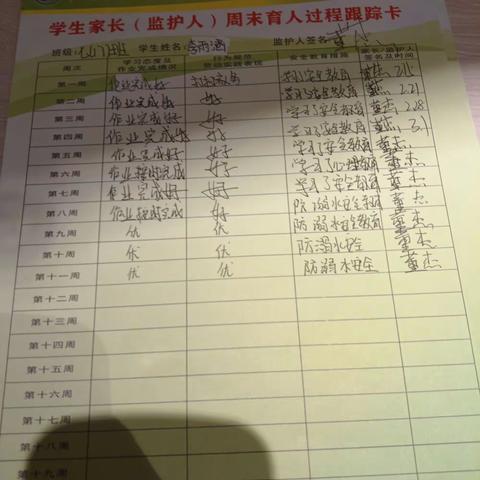 学生家长（监护人）周末育人过程跟踪卡
班级: 学生姓名: 李雨涵 监护人签名: 董杰
周次 学习态度及作业完成情况 行为规范 安全教育措施 家长/监护人签名及时间
第一周 作业完成好 学习安全教育 董杰
第二周 作业完成好 好 学习了安全教育 董杰 2.21
第三周 作业完成好 好 学习了安全教育 董杰 2.28
第四周 作业完成好 好 学习了安全教育 董杰
第五周 作业完成好 好 学习了安全教育 董杰
第六周 作业按时完成 好 学习了心理教育 董杰
第七周 作业完成好 好 学习了安全教育 董杰
第八周 作业按时完成 好 防溺水安全教育 董杰
第九周 优 优 防溺水安全教育 董杰
第十周 优 优 防溺水安全 董杰
第十一周 优 优 防溺水安全 董杰
第十二周
第十三周
第十四周
第十五周
第十六周
第十七周
第十八周
第十九周